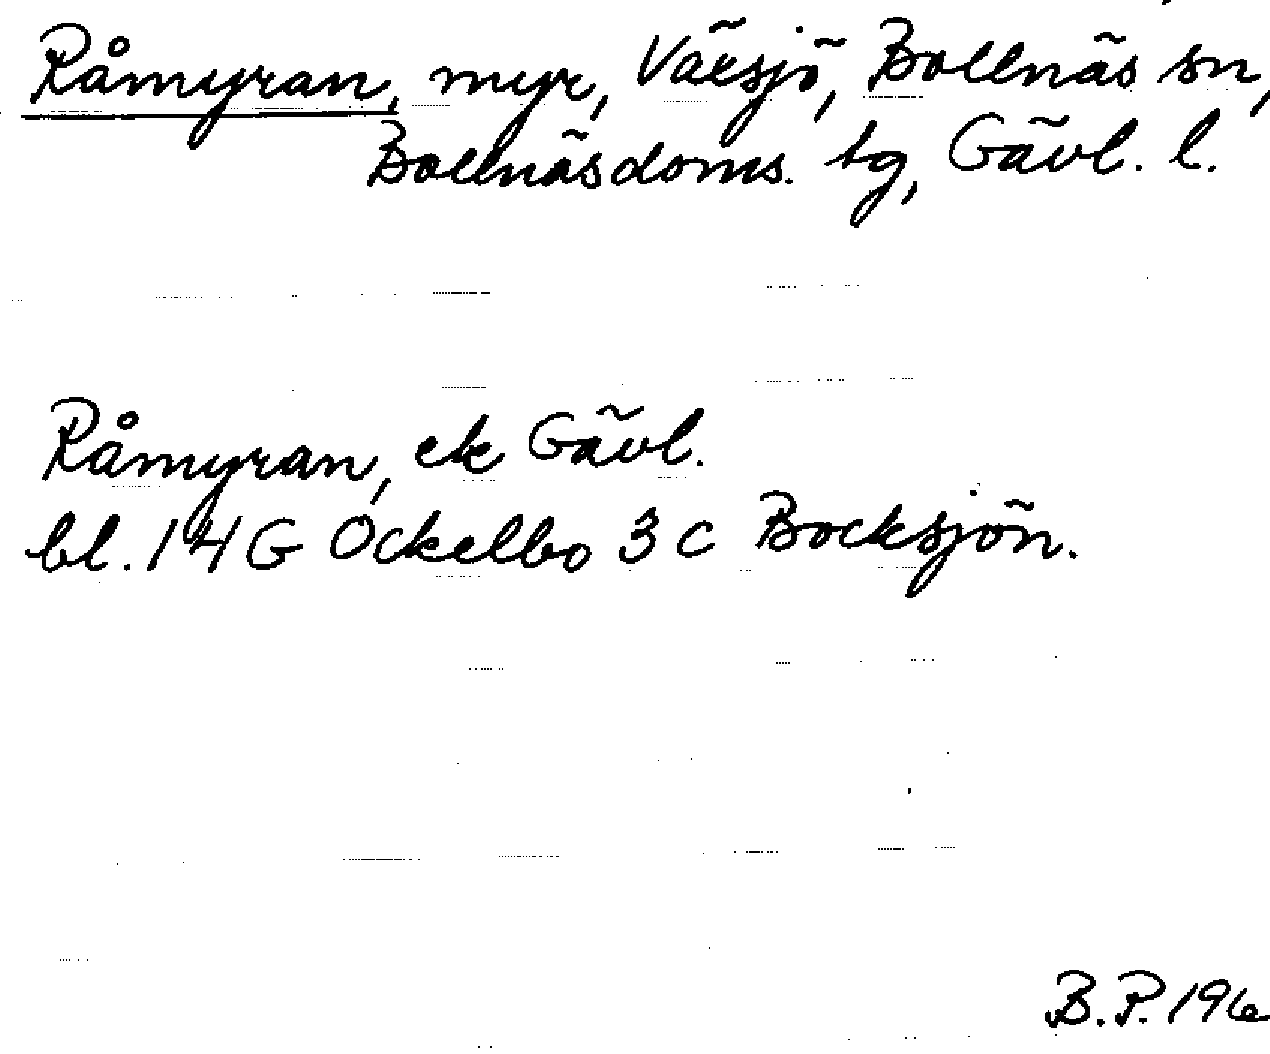 Råmyran, myr, Växsjö, Bollnäs sn,
Bollnäsdoms. tg, Gävl. l.
Råmyran, ek Gävl.
bl. 14G Ockelbo 3 c Bocksjön.
B.P. 196